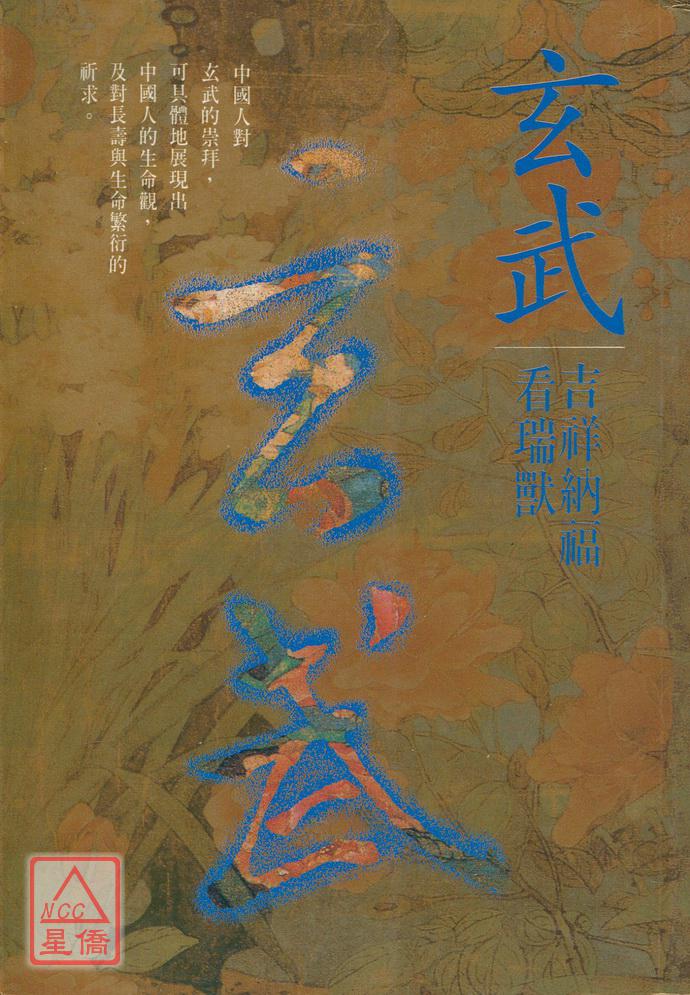 玄武
吉祥納福
看瑞獸
玄武
中國人對
玄武的崇拜，
可具體地展現出
中國人的生命觀，
及對長壽與生命繁衍的
祈求。
NCC
星僑